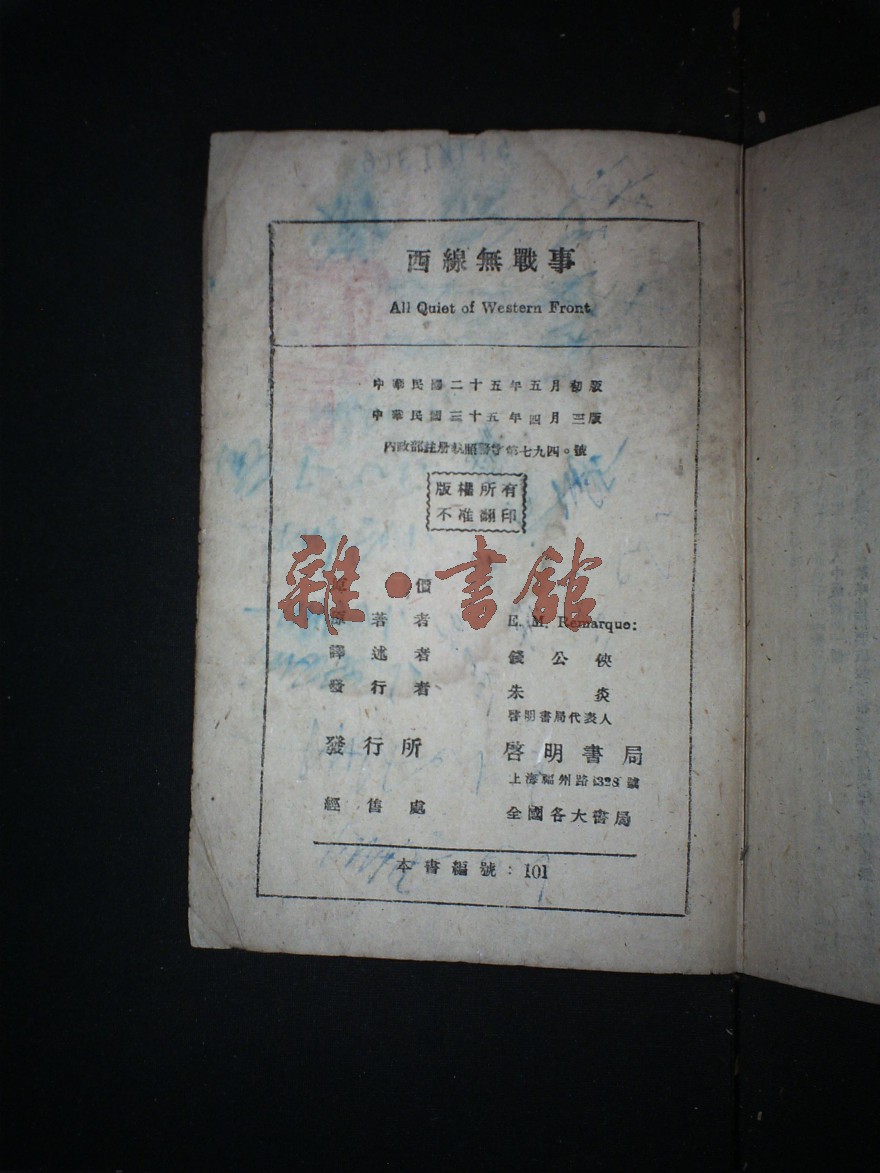 西線無戰事
All Quiet of Western Front
中華民國二十五年五月初版
中華民國三十五年四月三版
內政部註册執照警字第七九四〇號
版權所有
不准翻印
雜·書館
價
原著者 E. M. Remarque:
譯述者 錢公俠
發行者 朱炎
啓明書局代表人
發行所 啓明書局
上海福州路328號
經售處 全國各大書局
本書編號：101